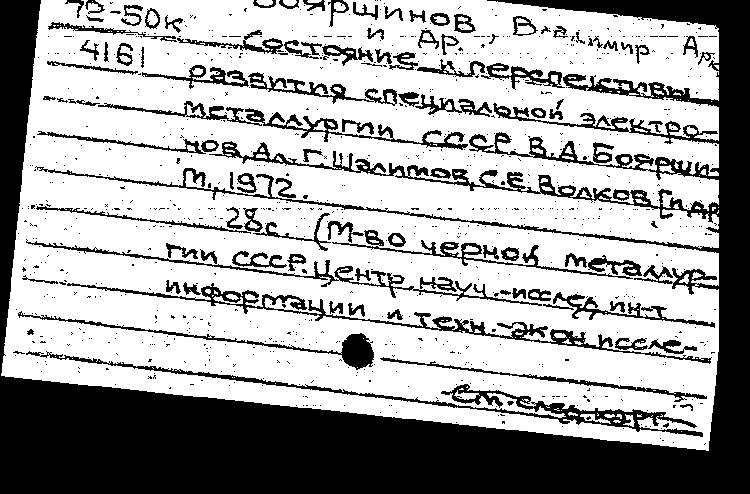 72-50к Бояршинов, Владимир
и др.
4161 Состояние и перспективы
развития специальной электро-
металлургии СССР. В.А. Боярши-
нов, Ал. Г. Шалимов, С.Е. Волков [и др
М., 1972.
28с. (М-во черной металлур-
гии СССР. Центр. науч.-исслед. ин-т
информации и техн.-экон. иссле-
См. след. карт.